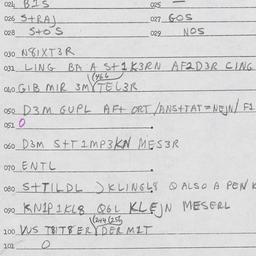 024 BIS 025 —
026 S+RAJ 027 GOS
028 S+O'S 029 NOS
030 N8IXT3R
031 LING BA A S+1K3RN AF2D3R CING
(466
040 GIB MIR 3M TEL3R
050 D3M GUPL AF+ ORT/ANS+TAT=NEJN/ F1
051 0
060 D3M S+T1MP3KN MES3R
070 ENTL
080 S+TILDL KLINGL8 Q ALSO A PEN K
090 KN1P1KL8 Q6L KLEJN MESERL
(244 (25)
100 VUS T8IT8 ER DER MIT
101 0